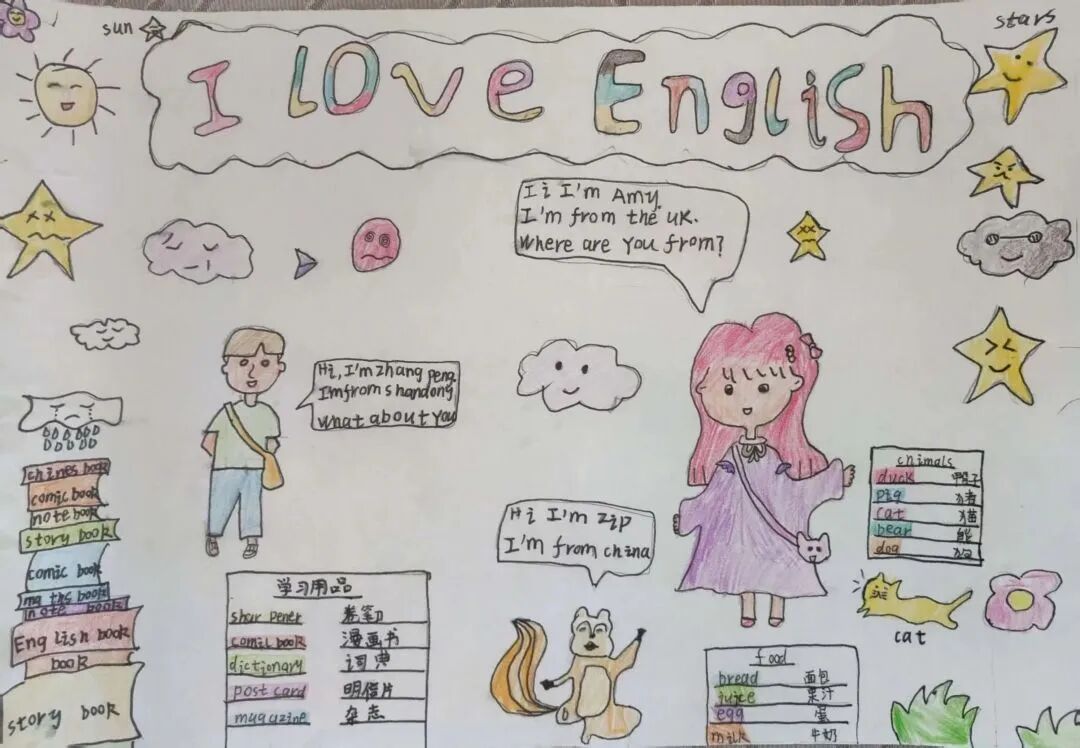 sun
stars
I love English
Ii I'm Amy.
I'm from the UK.
Where are you from?
Hi, I'm zhang peng
I'mfromshandong
what about you
Hi I'm zip
I'm from china
chines book
comic book
note book
story book
comic book
maths book
note book
English book
book
story book
学习用品
shar pener 卷笔刀
comic book 漫画书
dictionary 词典
post card 明信片
magazine 杂志
cnimals
duck 鸭子
pig 猪
cat 猫
bear 熊
dog 狗
cat
food
bread 面包
juice 果汁
egg 蛋
milk 牛奶